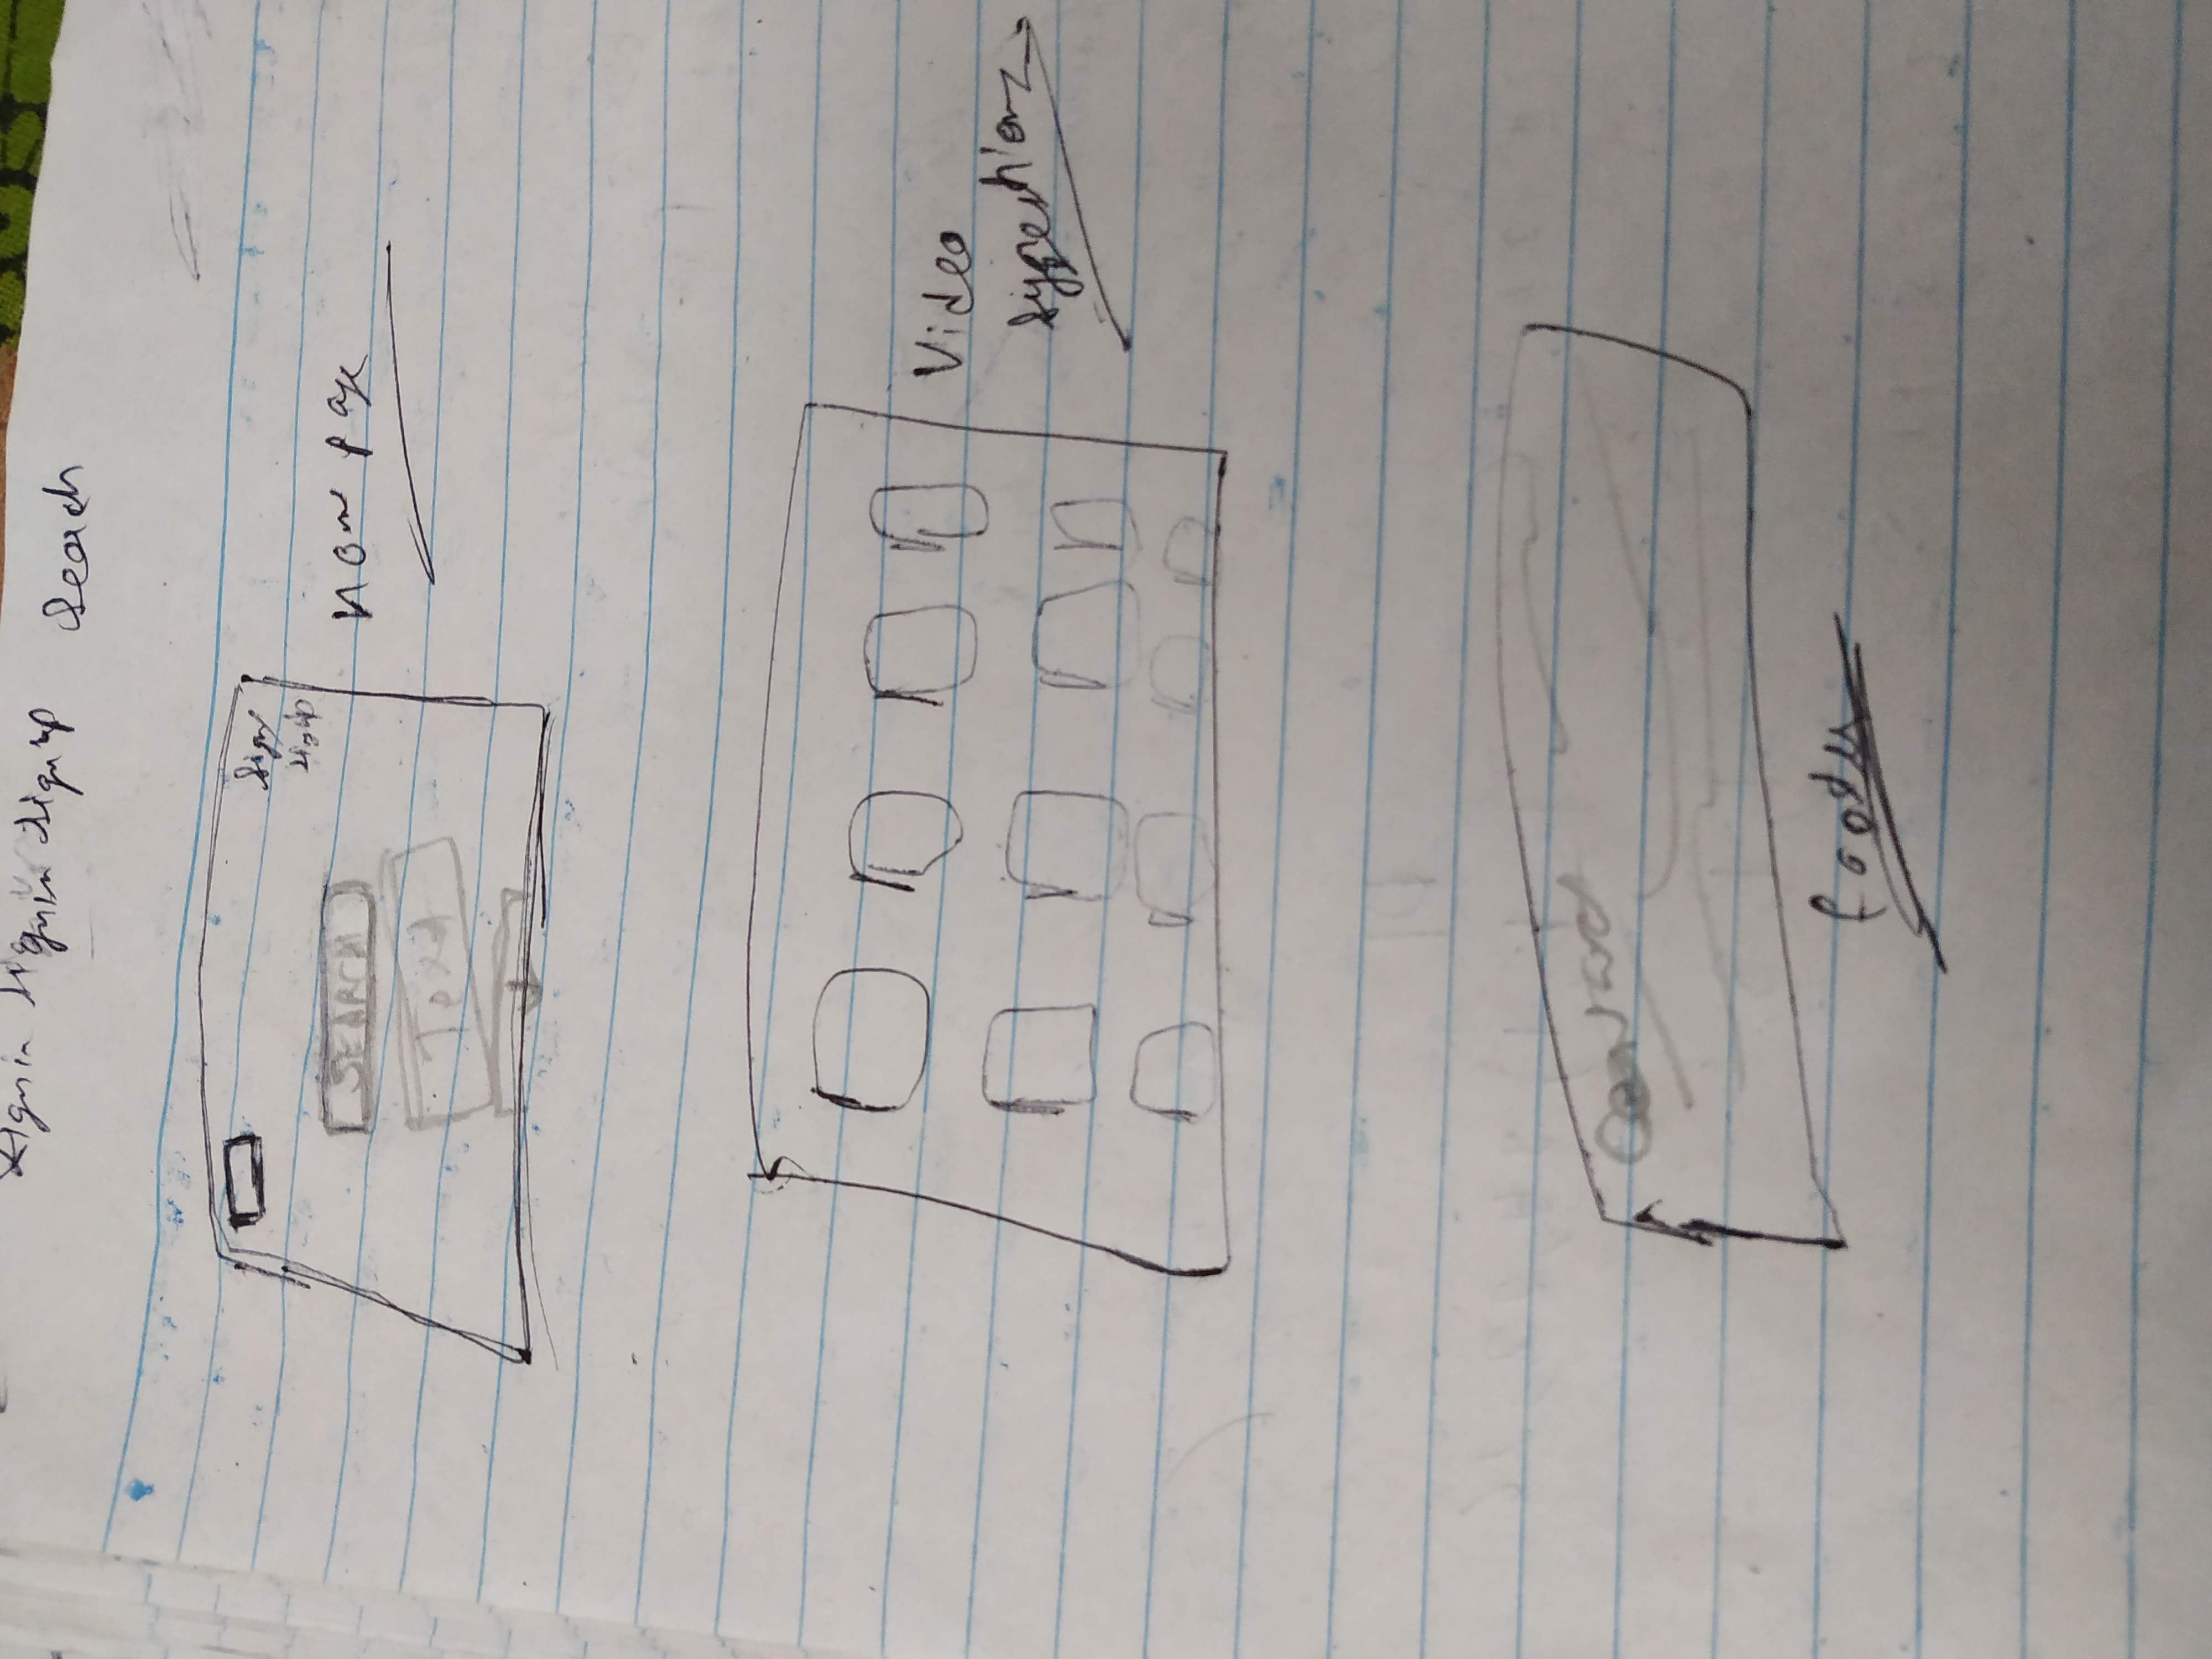 Signin Signin Signup Search
Sign
SignUp
SEARCH
Home page
Text
Video
Suggestions
Footer